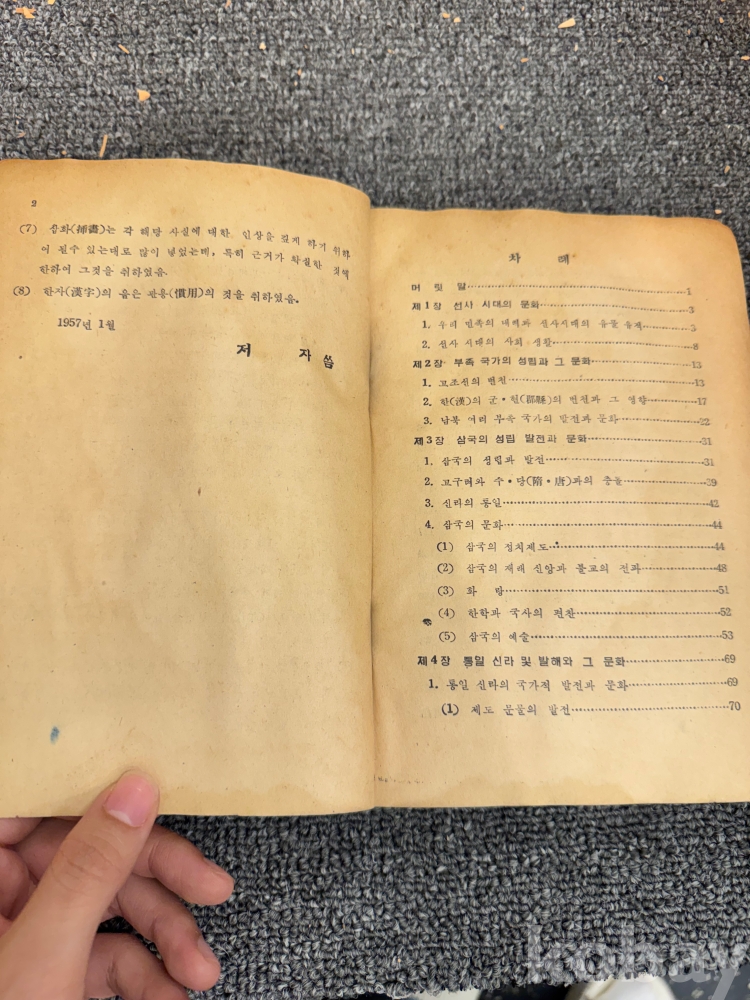 2
(7) 삽화(揷畵)는 각 해당 사실에 대한 인상을 깊게 하기 위하
여 될수 있는대로 많이 넣었는데, 특히 근거가 확실한 것에
한하여 그것을 취하였음.
(8) 한자(漢字)의 음은 관용(慣用)의 것을 취하였음.
1957년 1월
저 자 씀
차 례
머 릿 말 1
제1장 선사 시대의 문화 3
1. 우리 민족의 내력과 선사시대의 유물 유적 3
2. 선사 시대의 사회 생활 8
제2장 부족 국가의 성립과 그 문화 13
1. 고조선의 변천 13
2. 한(漢)의 군·현(郡縣)의 변천과 그 영향 17
3. 남북 여러 부족 국가의 발전과 문화 22
제3장 삼국의 성립 발전과 문화 31
1. 삼국의 성립과 발전 31
2. 고구려와 수·당(隋·唐)과의 충돌 39
3. 신라의 통일 42
4. 삼국의 문화 44
(1) 삼국의 정치제도 44
(2) 삼국의 재래 신앙과 불교의 전파 48
(3) 화 랑 51
(4) 한학과 국사의 편찬 52
(5) 삼국의 예술 53
제4장 통일 신라 및 발해와 그 문화 69
1. 통일 신라의 국가적 발전과 문화 69
(1) 제도 문물의 발전 70
kobay